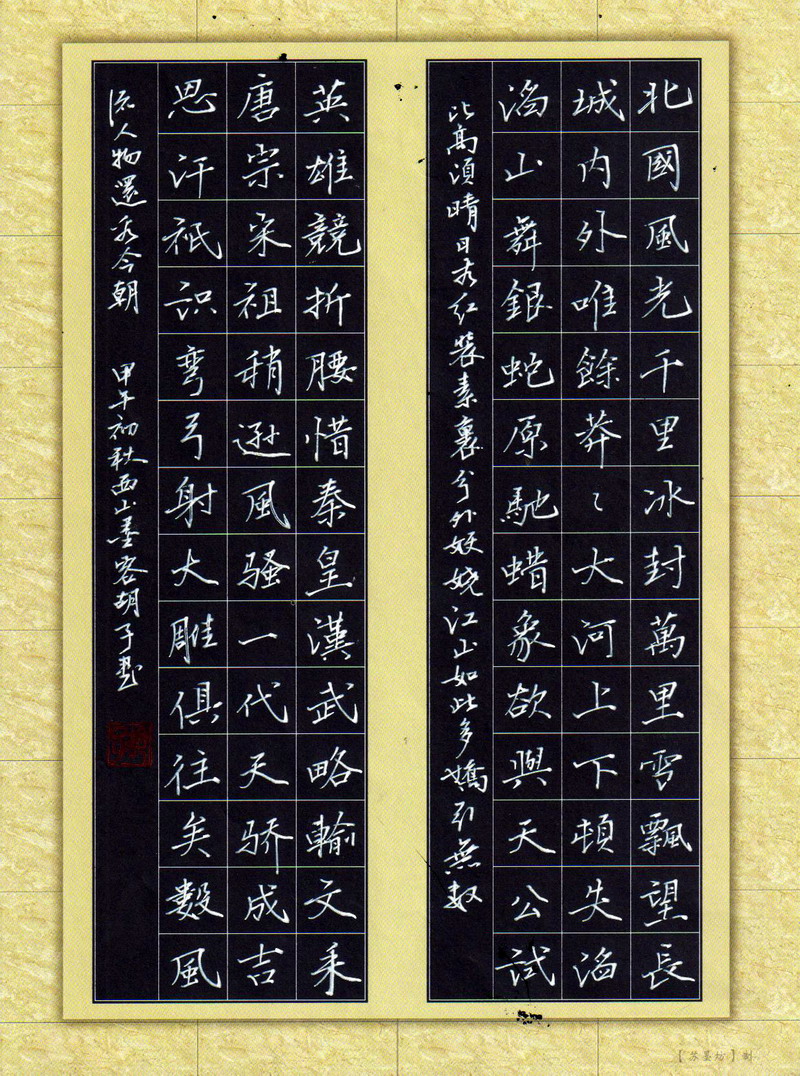 北國風光千里冰封萬里雪飄望長
城内外唯餘莽〻大河上下頓失滔
滔山舞銀蛇原馳蜡象欲與天公試
比高須晴日看红裝素裹分外妖娆江山如此多嬌引無数
英雄競折腰惜秦皇漢武略輸文采
唐宗宋祖稍逊風骚一代天骄成吉
思汗祇识弯弓射大雕俱往矣數風
流人物還看今朝 甲午初秋西山墨客胡子書
【苏墨坊】制